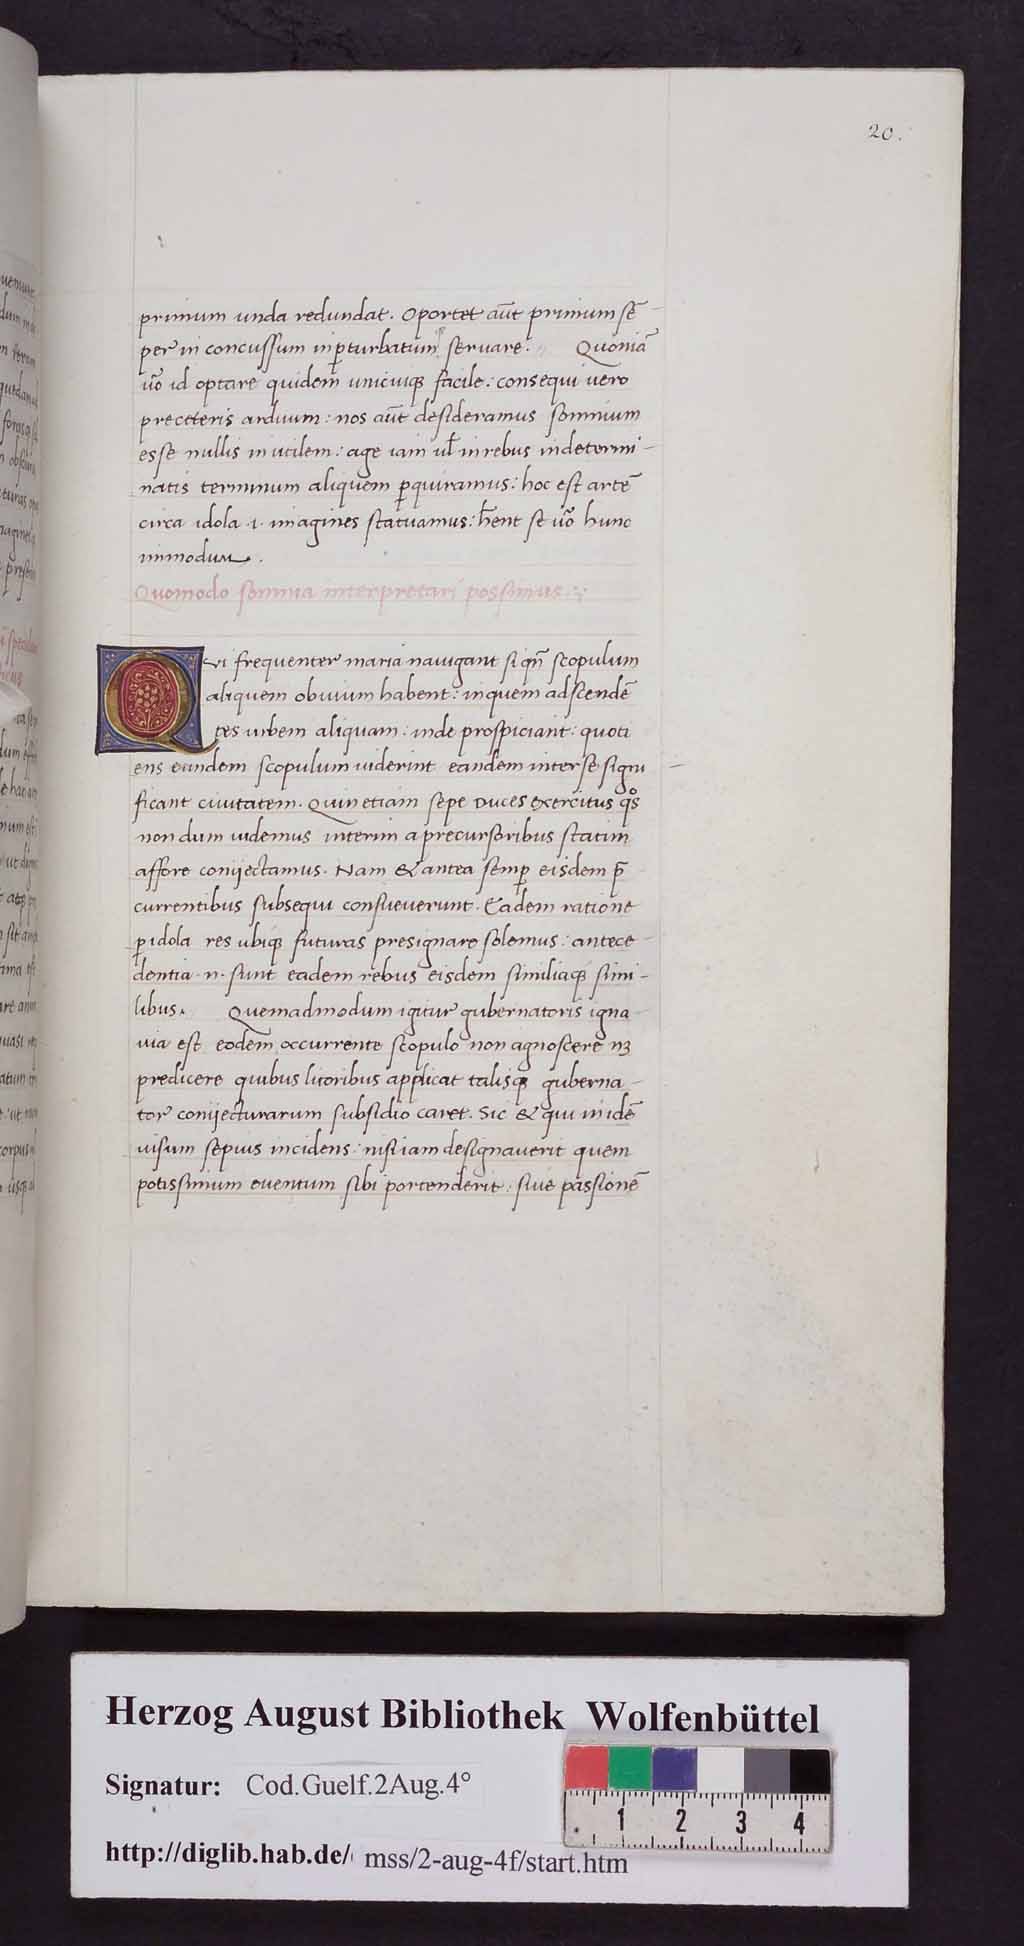 20.
primum unda redundat. Oportet aūt primum sē
per in concussum inꝑturbatum servare. Quoniā
uō id optare quidem unicuiqꝫ facile: consequi uero
preceteris arduum: nos aūt desideramus somnium
esse nullis inutilem: age iam ul̄ inrebus indetermi-
natis terminum aliquem ꝑquiramus: hoc est artē
circa idola .i. imagines statuamus: hēnt se uō hunc
inmodum.
Quomodo somnia interpretari possimus.
Qui frequenter maria navigant si qn̄ scopulum
aliquem obvium habent: inquem adscendē
tes urbem aliquam: inde prospiciant: quoti
ens eundem scopulum uiderint eandem inter se signi
ficant civitatem. Quin etiam sepe Duces exercitus qͦs
non dum uidemus interim aprecursoribus statim
affore conijectamus. Nam & antea semꝑ eisdem p̄
currentibus subsequi consueverunt. Eadem ratione
ꝑ idola res ubiqꝫ futuras presignare solemus: antece-
dentia .n. sunt eadem rebus eisdem similiaqꝫ simi-
libus. Quemadmodum igitur gubernatoris igna-
via est eodem occurrente scopulo non agnoscere nꝫ
predicere quibus litoribus applicat talisqꝫ guberna-
tor conijecturarum subsidio caret. Sic & qui in idē
visum sepius incidens: nisi iam designaverit quem
potissimum eventum sibi portenderit: sive passionē
Herzog August Bibliothek Wolfenbüttel
Signatur: Cod.Guelf.2Aug.4°
1 2 3 4
http://diglib.hab.de/ mss/2-aug-4f/start.htm